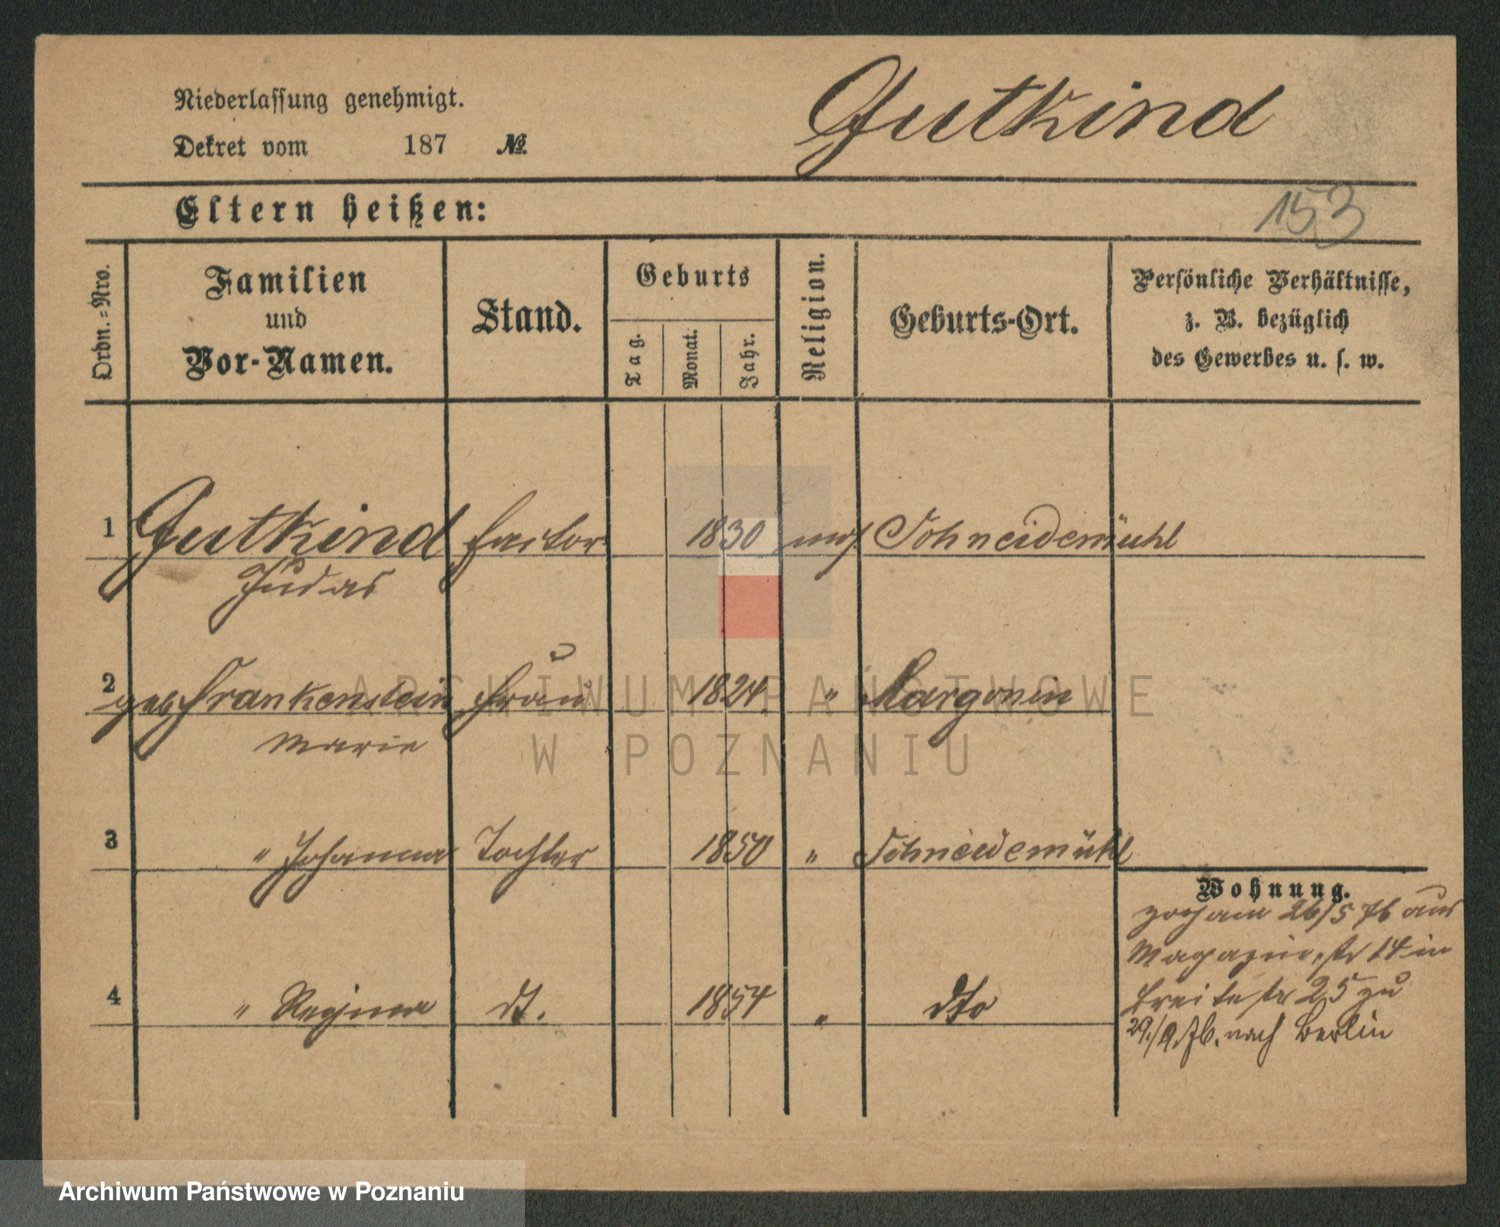 Niederlassung genehmigt.
Gutkind
Dekret vom 187 №
Eltern heißen:
153
Ordn.=Nro.
Familien
und
Vor-Namen.
Stand.
Geburts
Tag.
Monat.
Jahr.
Religion.
Geburts-Ort.
Persönliche Verhältnisse,
z. B. bezüglich
des Gewerbes u. s. w.
1 Gutkind Factor 1830 mos Schneidemühl
Judas
2 geb Frankenstein Frau 1824 " Margonin
Marie
3 " Johanna Tochter 1850 " Schneidemühl
Wohnung.
zog am 26/5 76 aus
Magazinstr 14 in
4 " Regina dt. 1854 " dto
Breitestr 25 zu
29./9. 76. nach Berlin
ARCHIWUM PAŃSTWOWE
W POZNANIU
Archiwum Państwowe w Poznaniu